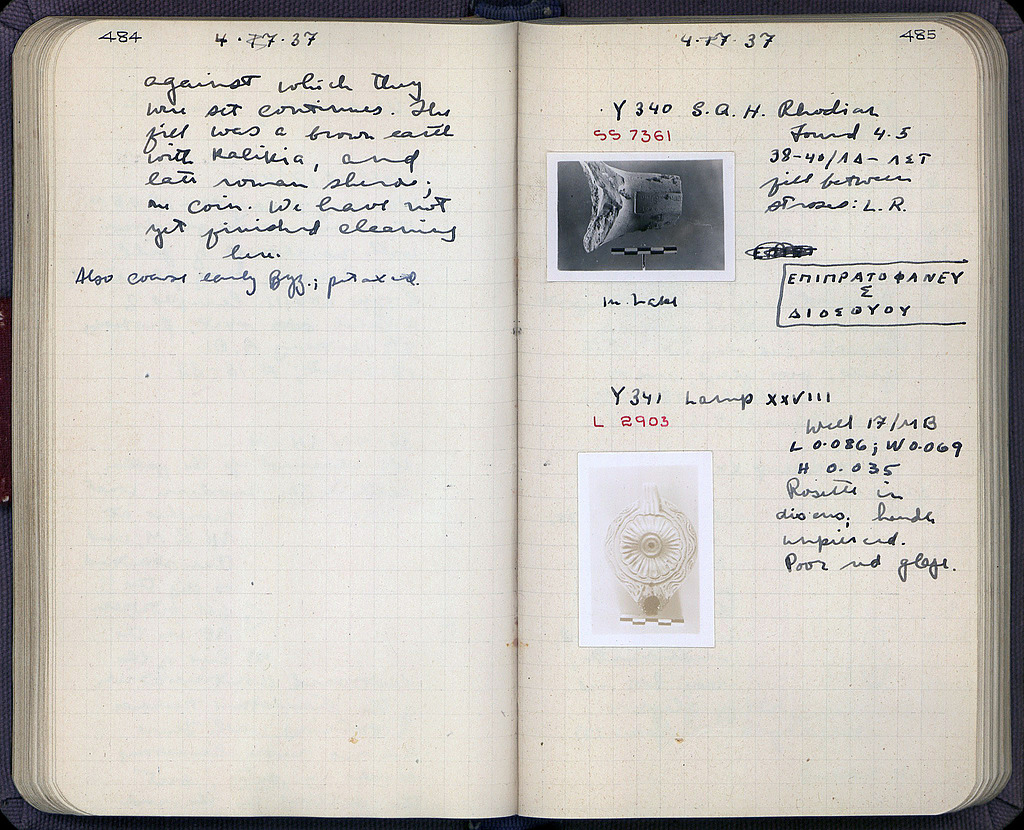 484
4.17.37
against which they
were set continues. The
fill was a brown earth
with Kalikia, and
late roman sherds;
no coin. We have not
yet finished cleaning
here.
Also coarse early Byz.;
4.17.37
485
Y 340 S.A.H. Rhodian
SS 7361
Found 4.5
38-40/ΛΔ-ΛΣΤ
fill between
stroses: L.R.
ΕΠΙΠΡΑΤΟΦΑΝΕΥ
Σ
ΔΙΟΣΘΥΟΥ
Y 341 Lamp XXVIII
L 2903
Well 17/ΜΒ
L 0.086; W 0.069
H 0.035
Rosette in
discus; handle
unpierced.
Poor red glaze.